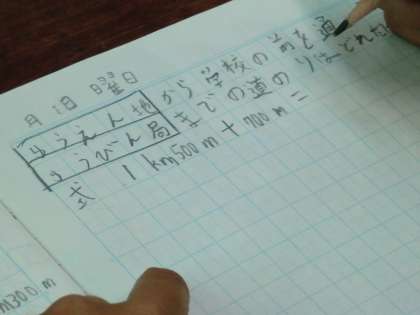 月1日 曜日
ゆうえん地から学校の前を通
ゆうびん局までの道のりは
式 1km500m+700m=
m300m